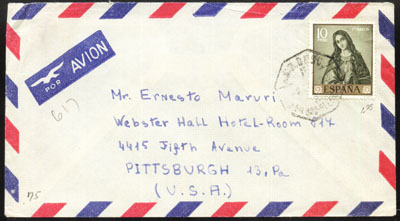 POR AVION
10
CORREOS
ESPAÑA
617
Mr. Ernesto Maruri
Webster Hall Hotel-Room 617
4415 Fifth Avenue
PITTSBURGH 13, Pa
(U.S.A.)